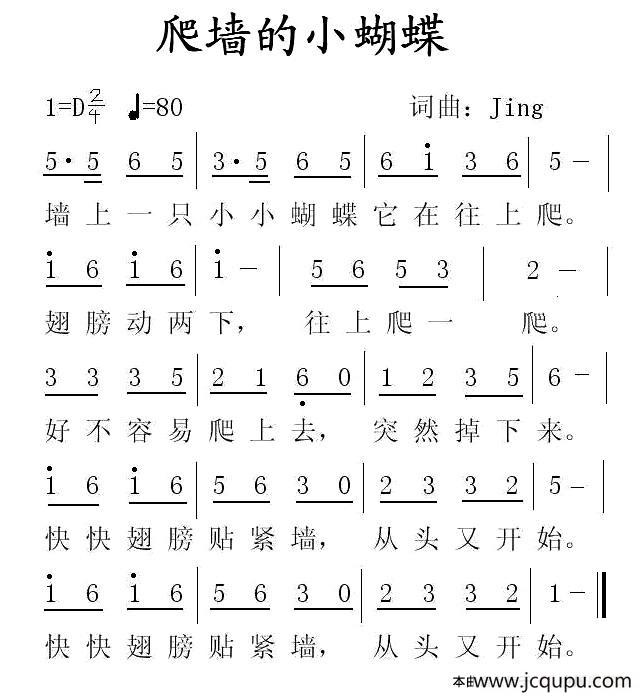 爬墙的小蝴蝶
1=D2/4 ♩=80 词曲：Jing
5· 5 6 5 | 3· 5 6 5 | 6 i 3 6 | 5 － |
墙上一只小小蝴蝶它在往上爬。
i 6 i 6 | i － | 5 6 5 3 | 2 － |
翅膀动两下， 往上爬一 爬。
3 3 3 5 | 2 1 6̣ 0 | 1 2 3 5 | 6 － |
好不容易爬上去， 突然掉下来。
i 6 i 6 | 5 6 3 0 | 2 3 3 2 | 5 － |
快快翅膀贴紧墙， 从头又开始。
i 6 i 6 | 5 6 3 0 | 2 3 3 2 | 1 － ‖
快快翅膀贴紧墙， 从头又开始。
本曲www.jcqupu.com